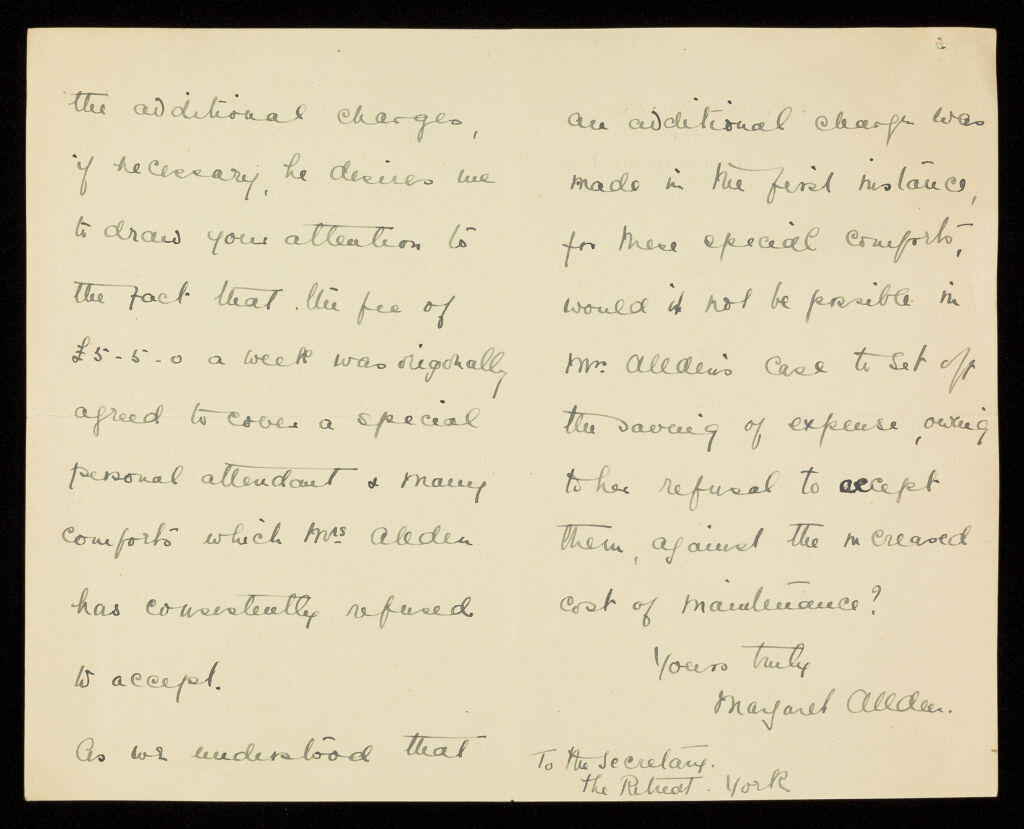 the additional charges,
if necessary, he desires me
to draw your attention to
the fact that the fee of
£5-5-0 a week was origonally
agreed to cover a special
personal attendant & many
comforts which Mrs Allden
has consistently refused
to accept.
As we understood that
an additional charge was
made in the first instance,
for these special comforts,
would it not be possible in
Mrs. Allden's case to set off
the saving of expense, owing
to her refusal to accept
them, against the increased
cost of maintenance?
Yours truly
Margaret Allden.
To the Secretary.
the Retreat. York